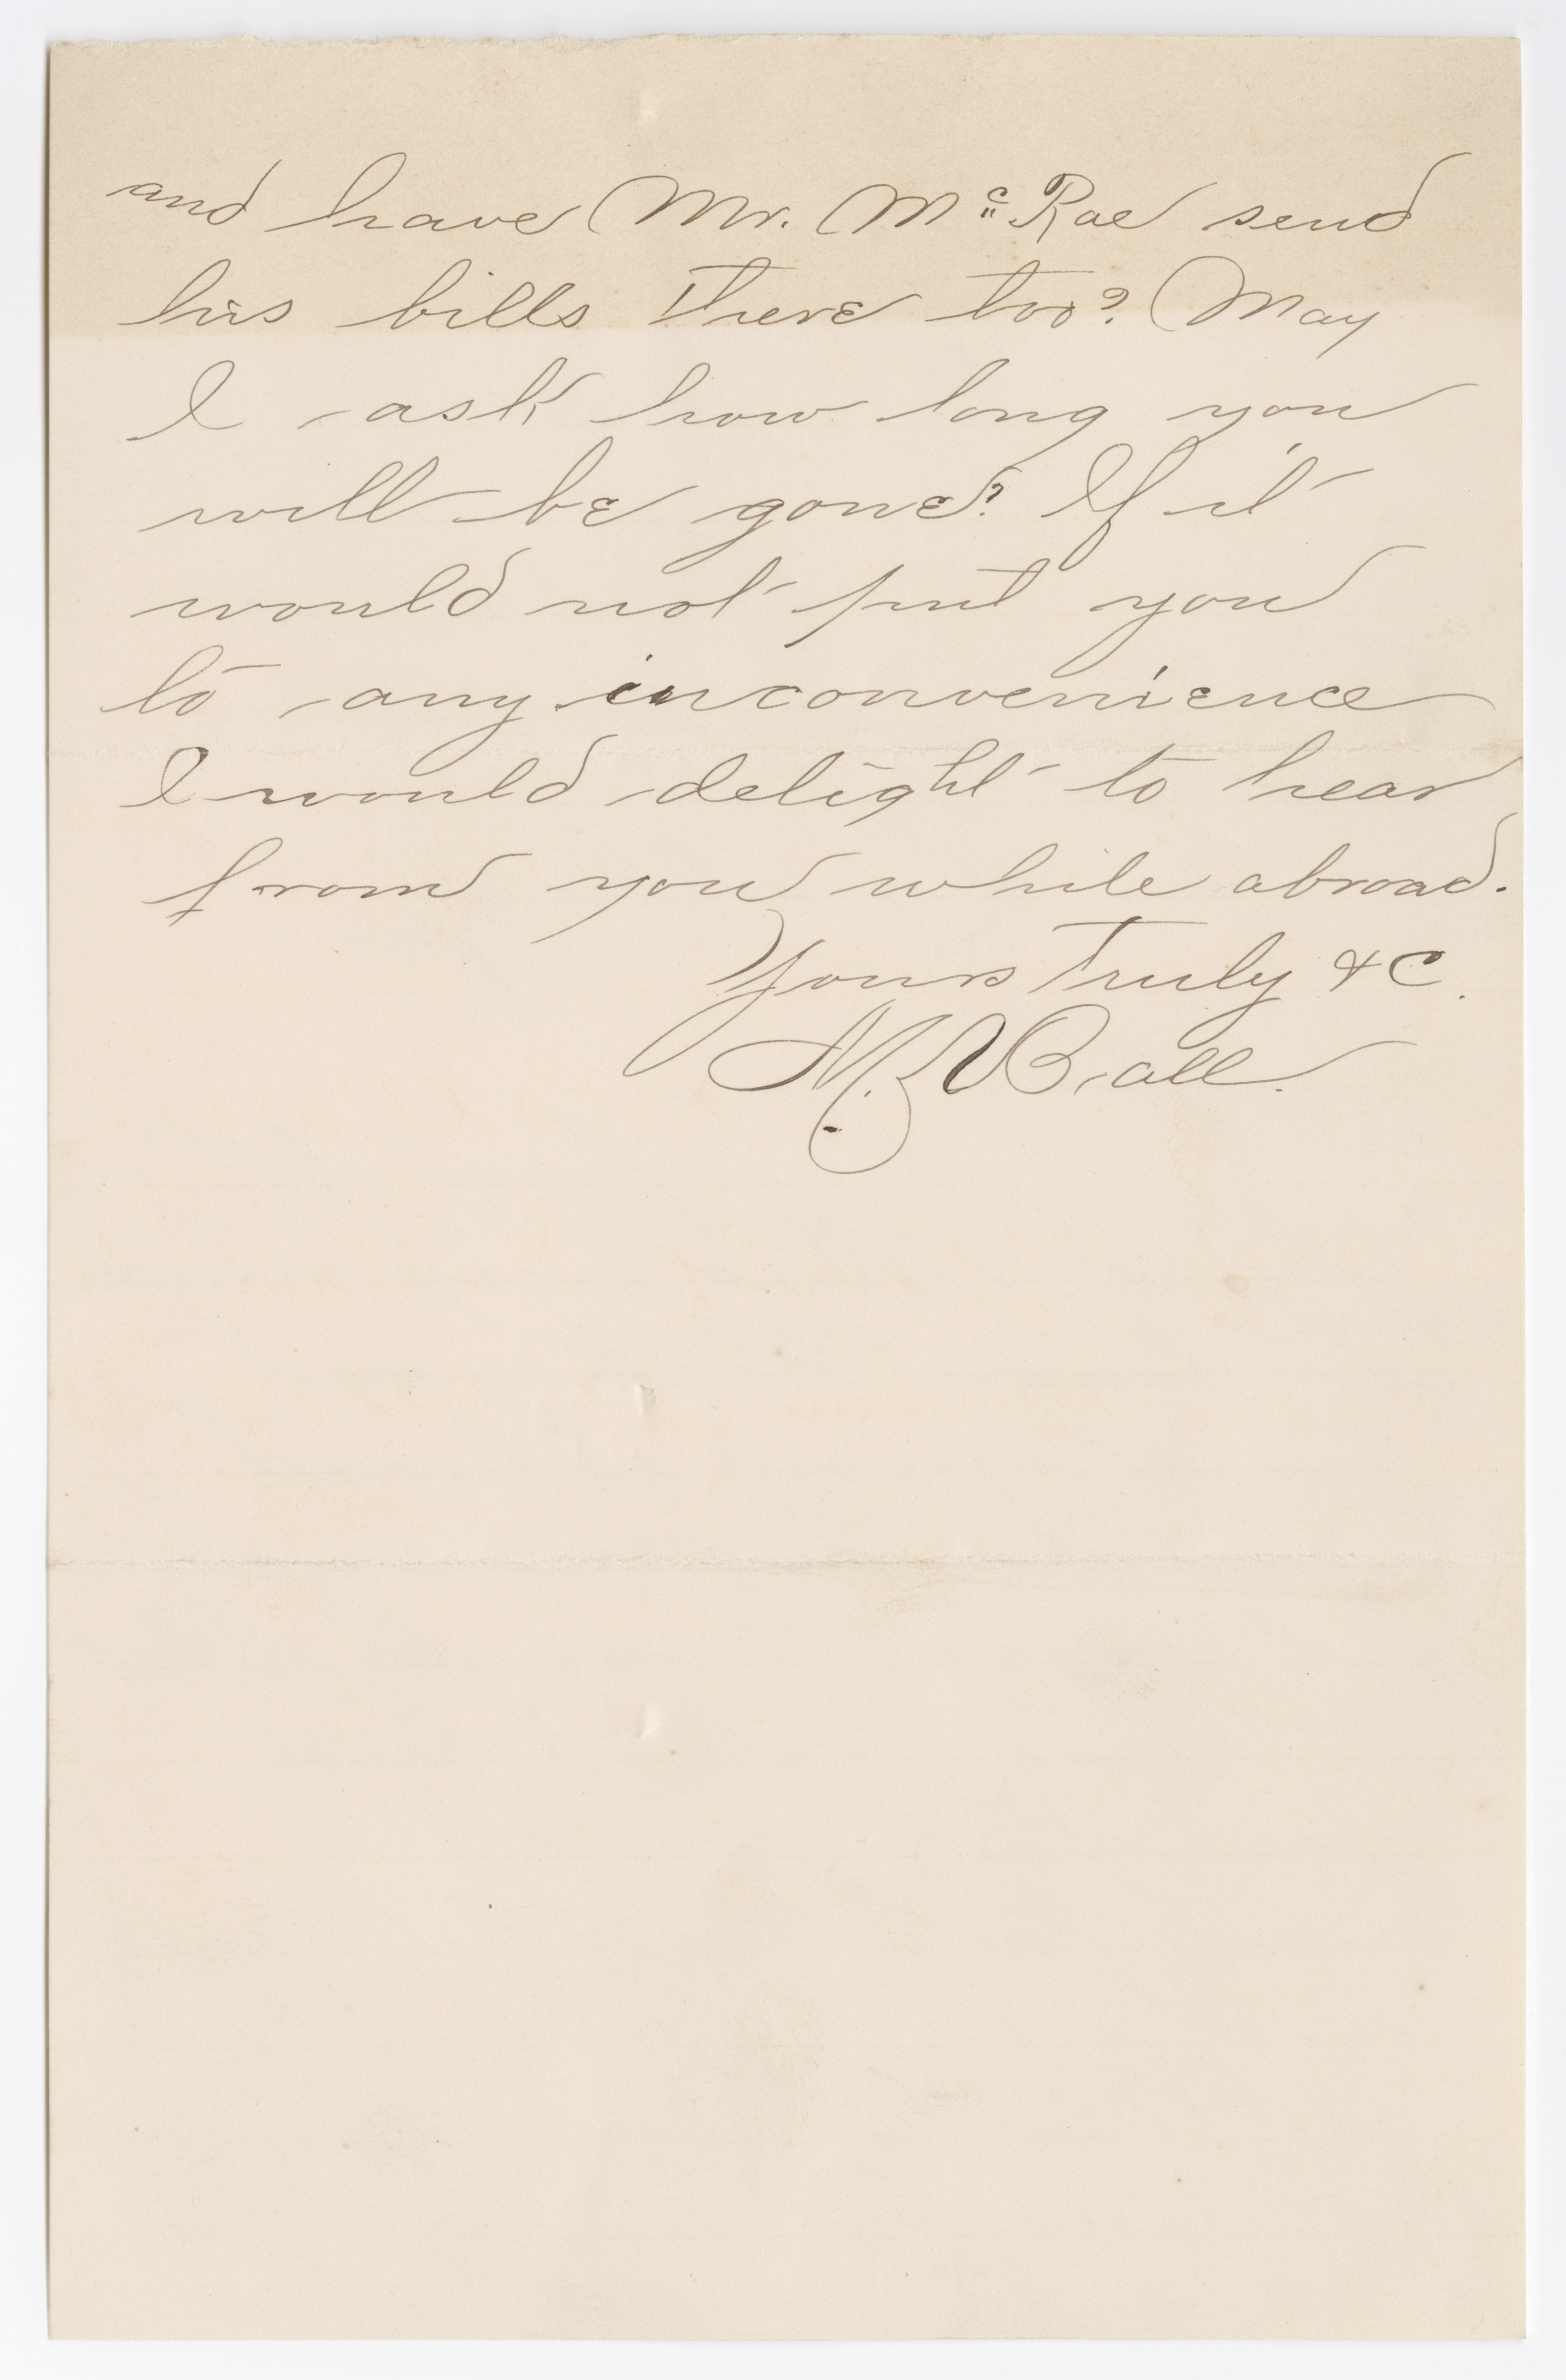 and have Mr. McRae send
his bills there too? May
I ask how long you
will be gone? If it
would not put you
to any inconvenience
I would delight to hear
from you while abroad.
Yours Truly &C.
M. V. Ball.